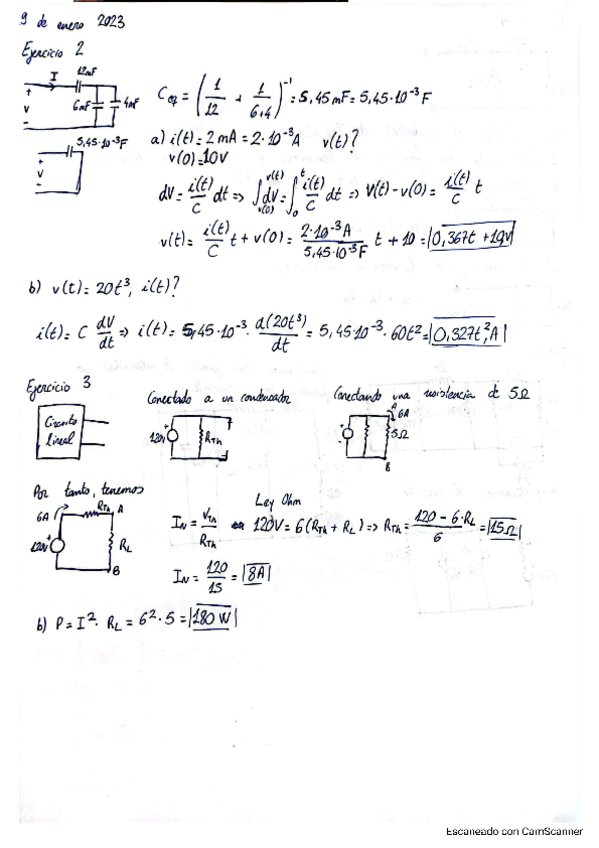 9 de enero 2023
Ejercicio 2
I 12mF
+ V - 6mF 4mF
Ceq = (1/12 + 1/(6+4))^-1 = 5,45mF = 5,45·10^-3 F
5,45·10^-3F
+ V -
a) i(t) = 2 mA = 2·10^-3A v(t)?
v(0) = 10V
dV = i(t)/C dt => ∫v(0)^v(t) dV = ∫0^t i(t)/C dt => V(t) - v(0) = i(t)/C t
v(t) = i(t)/C t + v(0) = 2·10^-3A/5,45·10^-3F t + 10 = |0,367t + 10V|
b) v(t) = 20t^3, i(t)?
i(t) = C dV/dt => i(t) = 5,45·10^-3 · d(20t^3)/dt = 5,45·10^-3 · 60t^2 = |0,327t^2, A|
Ejercicio 3
Circuito lineal
Conectado a un condensador
120V + RTh
Conectando una resistencia de 5Ω
+ - A 6A 5Ω B
Por tanto, tenemos
6A RTh A
120V + RL
B
Ley Ohm
IN = VTh/RTh 120V = 6(RTh + RL) => RTh = 120 - 6·RL/6 = |15Ω|
IN = 120/15 = |8A|
b) P = I^2 · RL = 6^2 · 5 = |180 W|
Escaneado con CamScanner